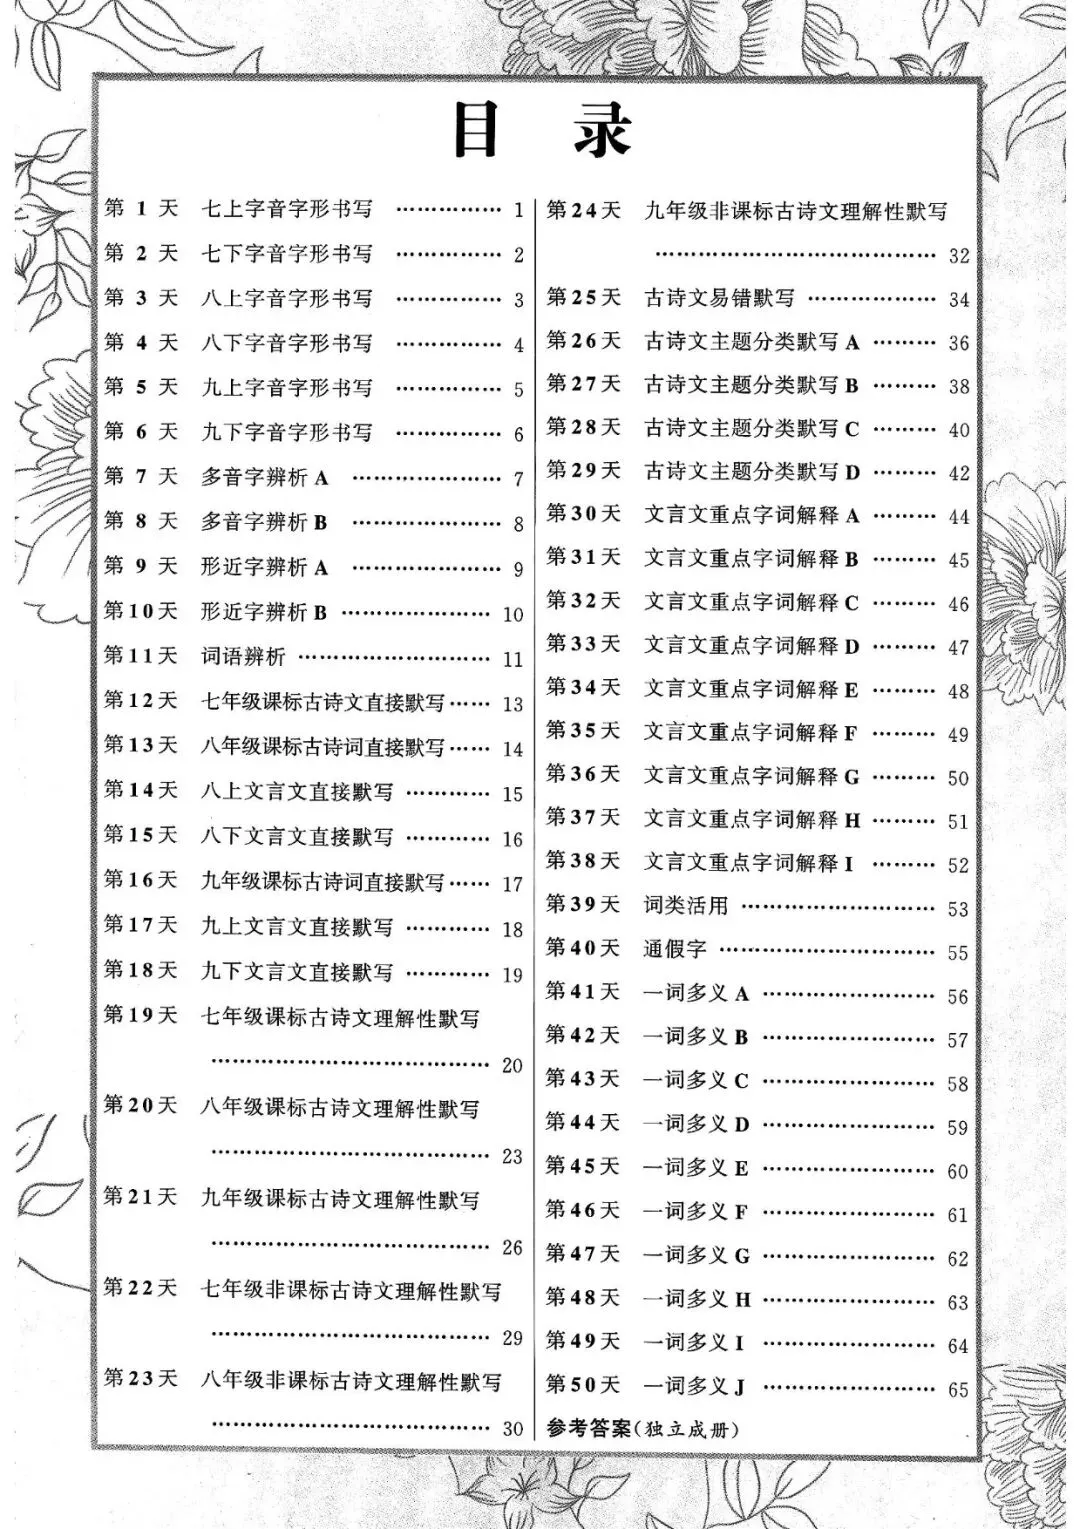 目 录
第 1 天 七上字音字形书写 …………… 1
第 2 天 七下字音字形书写 …………… 2
第 3 天 八上字音字形书写 …………… 3
第 4 天 八下字音字形书写 …………… 4
第 5 天 九上字音字形书写 …………… 5
第 6 天 九下字音字形书写 …………… 6
第 7 天 多音字辨析 A ………………… 7
第 8 天 多音字辨析 B ………………… 8
第 9 天 形近字辨析 A ………………… 9
第10天 形近字辨析 B ………………… 10
第11天 词语辨析 ……………………… 11
第12天 七年级课标古诗文直接默写 …… 13
第13天 八年级课标古诗词直接默写 …… 14
第14天 八上文言文直接默写 ………… 15
第15天 八下文言文直接默写 ………… 16
第16天 九年级课标古诗词直接默写 …… 17
第17天 九上文言文直接默写 ………… 18
第18天 九下文言文直接默写 ………… 19
第19天 七年级课标古诗文理解性默写
………………………………… 20
第20天 八年级课标古诗文理解性默写
………………………………… 23
第21天 九年级课标古诗文理解性默写
………………………………… 26
第22天 七年级非课标古诗文理解性默写
………………………………… 29
第23天 八年级非课标古诗文理解性默写
………………………………… 30
第24天 九年级非课标古诗文理解性默写
………………………………… 32
第25天 古诗文易错默写 ……………… 34
第26天 古诗文主题分类默写 A ……… 36
第27天 古诗文主题分类默写 B ……… 38
第28天 古诗文主题分类默写 C ……… 40
第29天 古诗文主题分类默写 D ……… 42
第30天 文言文重点字词解释 A ……… 44
第31天 文言文重点字词解释 B ……… 45
第32天 文言文重点字词解释 C ……… 46
第33天 文言文重点字词解释 D ……… 47
第34天 文言文重点字词解释 E ……… 48
第35天 文言文重点字词解释 F ……… 49
第36天 文言文重点字词解释 G ……… 50
第37天 文言文重点字词解释 H ……… 51
第38天 文言文重点字词解释 I ……… 52
第39天 词类活用 ……………………… 53
第40天 通假字 ………………………… 55
第41天 一词多义 A …………………… 56
第42天 一词多义 B …………………… 57
第43天 一词多义 C …………………… 58
第44天 一词多义 D …………………… 59
第45天 一词多义 E …………………… 60
第46天 一词多义 F …………………… 61
第47天 一词多义 G …………………… 62
第48天 一词多义 H …………………… 63
第49天 一词多义 I …………………… 64
第50天 一词多义 J …………………… 65
参考答案(独立成册)